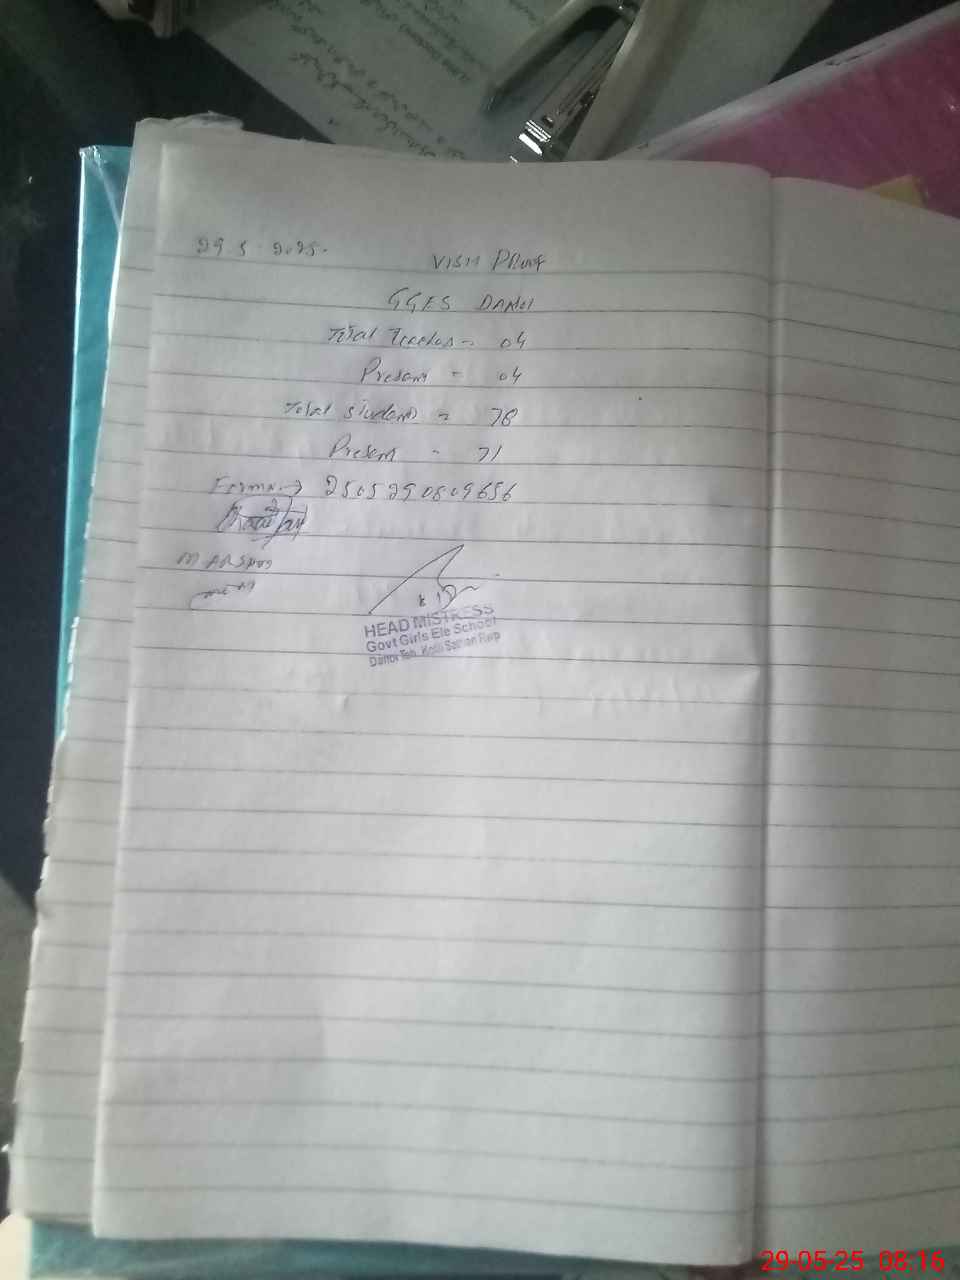 29.5.2025.
VISIT PROOF
GGES DANOI
Total Teachers = 04
Present = 04
Total Students = 78
Present = 71
Form No → 2505290809656
M ARSHAD
HEAD MISTRESS
Govt Girls Ele School
Danoi Teh. Kotli Sattian Rwp
29-05-25 08:16